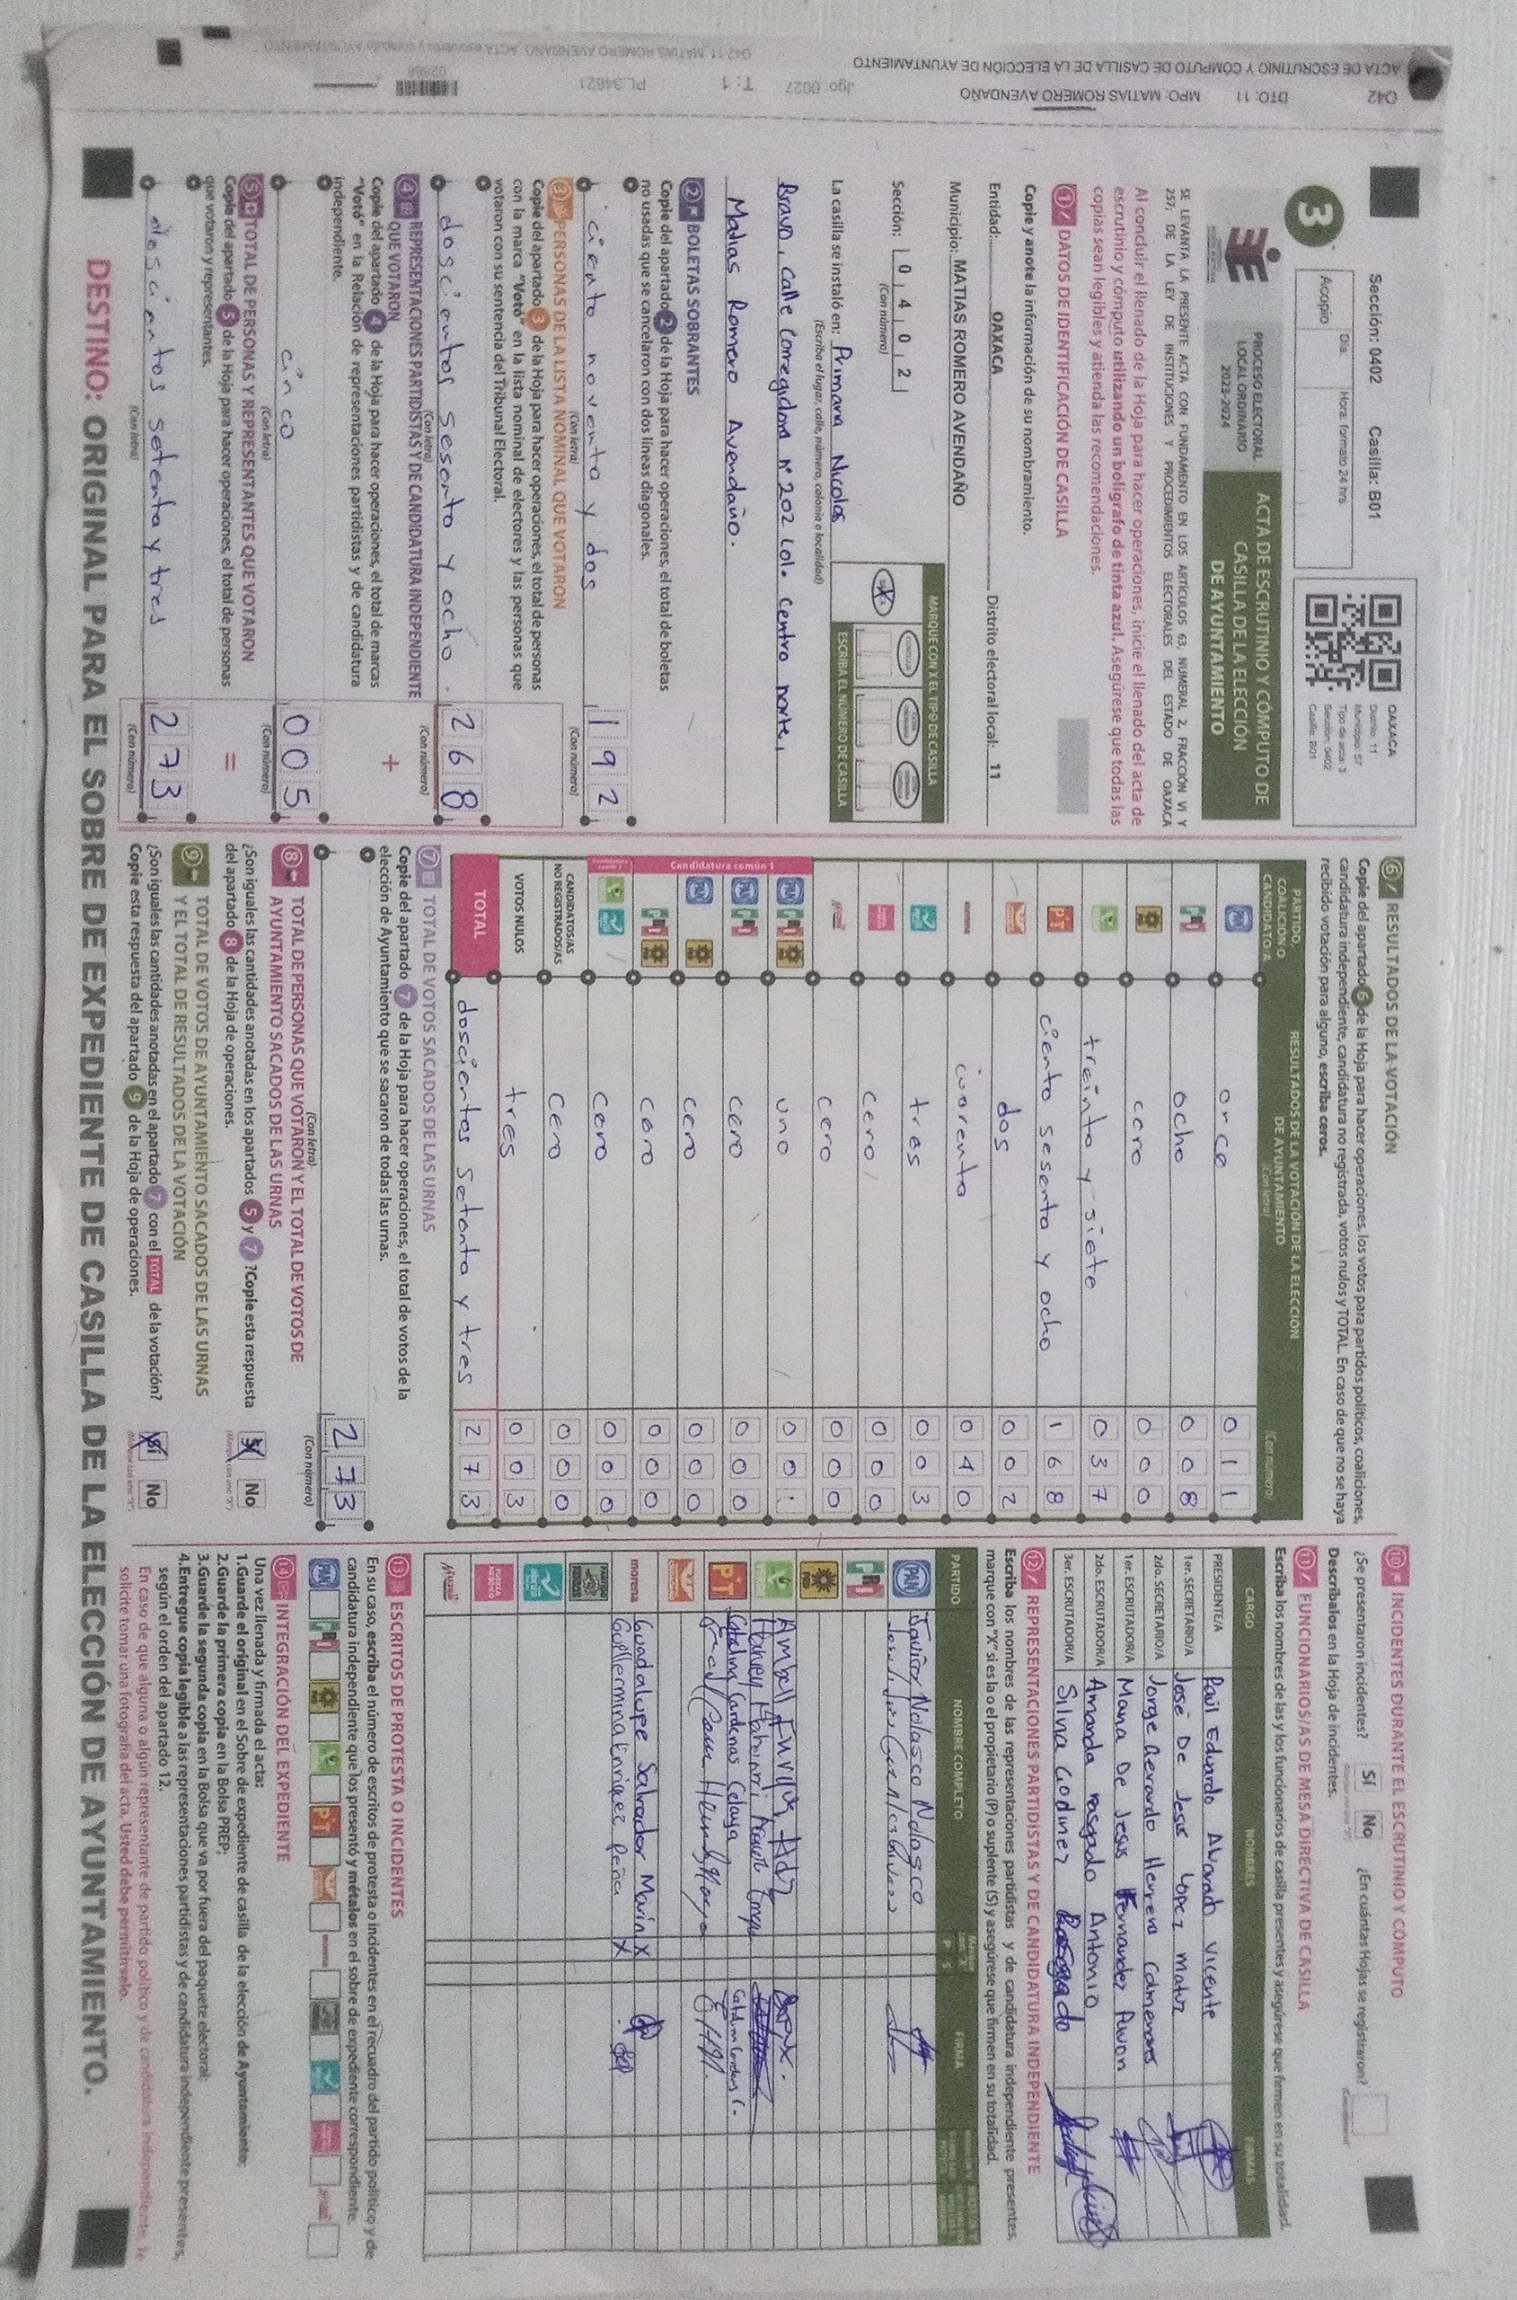 Sección: 0402 Casilla: B01
Día: Hora: formato 24 hrs
Acopio
3
OAXACA
Distrito: 11
Municipio: 57
Tipo de acta: 3
Sección: 0402
Casilla: B01
PROCESO ELECTORAL
LOCAL ORDINARIO
2023-2024
ACTA DE ESCRUTINIO Y CÓMPUTO DE
CASILLA DE LA ELECCIÓN
DE AYUNTAMIENTO
SE LEVANTA LA PRESENTE ACTA CON FUNDAMENTO EN LOS ARTÍCULOS 63, NUMERAL 2, FRACCIÓN VI Y
257; DE LA LEY DE INSTITUCIONES Y PROCEDIMIENTOS ELECTORALES DEL ESTADO DE OAXACA
Al concluir el llenado de la Hoja para hacer operaciones, inicie el llenado del acta de
escrutinio y cómputo utilizando un bolígrafo de tinta azul. Asegúrese que todas las
copias sean legibles y atienda las recomendaciones.
1 DATOS DE IDENTIFICACIÓN DE CASILLA
Copie y anote la información de su nombramiento.
Entidad: OAXACA Distrito electoral local: 11
Municipio: MATIAS ROMERO AVENDAÑO
Sección: 0 4 0 2
(Con número)
MARQUE CON X EL TIPO DE CASILLA
ESCRIBA EL NÚMERO DE CASILLA
La casilla se instaló en: Primaria Nicolas
(Escriba el lugar, calle, número, colonia o localidad)
Bravo, Calle Corregidora N° 202 Col. Centro norte,
Matias Romero Avendaño.
2 BOLETAS SOBRANTES
Copie del apartado 2 de la Hoja para hacer operaciones, el total de boletas
no usadas que se cancelaron con dos líneas diagonales.
ciento noventa y dos 1 9 2
(Con letra) (Con número)
3 PERSONAS DE LA LISTA NOMINAL QUE VOTARON
Copie del apartado 3 de la Hoja para hacer operaciones, el total de personas
con la marca "Votó" en la lista nominal de electores y las personas que
votaron con su sentencia del Tribunal Electoral.
doscientos sesenta y ocho. 2 6 8
(Con letra) (Con número)
4 REPRESENTACIONES PARTIDISTAS Y DE CANDIDATURA INDEPENDIENTE
QUE VOTARON
Copie del apartado 4 de la Hoja para hacer operaciones, el total de marcas
"Votó" en la Relación de representaciones partidistas y de candidatura
independiente.
+
cinco 0 0 5
(Con letra) (Con número)
5 TOTAL DE PERSONAS Y REPRESENTANTES QUE VOTARON
Copie del apartado 5 de la Hoja para hacer operaciones, el total de personas
que votaron y representantes.
=
doscientos setenta y tres 2 7 3
(Con letra) (Con número)
6 RESULTADOS DE LA VOTACIÓN
Copie del apartado 6 de la Hoja para hacer operaciones, los votos para partidos políticos, coaliciones,
candidatura independiente, candidatura no registrada, votos nulos y TOTAL. En caso de que no se haya
recibido votación para alguno, escriba ceros.
PARTIDO, COALICIÓN O CANDIDATO/A
RESULTADOS DE LA VOTACIÓN DE LA ELECCIÓN
DE AYUNTAMIENTO
(Con letra) (Con número)
PAN once 0 1 1
PRI ocho 0 0 8
PRD cero 0 0 0
treinta y siete 0 3 7
PT ciento sesenta y ocho 1 6 8
dos 0 0 2
morena cuarenta 0 4 0
tres 0 0 3
cero 0 0 0
cero 0 0 0
Candidatura común 1
PAN PRI PRD uno 0 0 1
PAN PRI cero 0 0 0
PAN PRD cero 0 0 0
PRI PRD cero 0 0 0
cero 0 0 0
CANDIDATOS/AS NO REGISTRADOS/AS cero 0 0 0
VOTOS NULOS tres 0 0 3
TOTAL doscientos setenta y tres 2 7 3
7 TOTAL DE VOTOS SACADOS DE LAS URNAS
Copie del apartado 7 de la Hoja para hacer operaciones, el total de votos de la
elección de Ayuntamiento que se sacaron de todas las urnas.
2 7 3
(Con letra) (Con número)
8 TOTAL DE PERSONAS QUE VOTARON Y EL TOTAL DE VOTOS DE
AYUNTAMIENTO SACADOS DE LAS URNAS
¿Son iguales las cantidades anotadas en los apartados 5 y 7? Copie esta respuesta
del apartado 8 de la Hoja de operaciones.
Sí No
9 TOTAL DE VOTOS DE AYUNTAMIENTO SACADOS DE LAS URNAS
Y EL TOTAL DE RESULTADOS DE LA VOTACIÓN
¿Son iguales las cantidades anotadas en el apartado 7 con el TOTAL de la votación?
Copie esta respuesta del apartado 9 de la Hoja de operaciones.
Sí No
10 INCIDENTES DURANTE EL ESCRUTINIO Y CÓMPUTO
¿Se presentaron incidentes? Sí No ¿En cuántas Hojas se registraron?
Descríbalos en la Hoja de incidentes.
11 FUNCIONARIOS/AS DE MESA DIRECTIVA DE CASILLA
Escriba los nombres de las y los funcionarios de casilla presentes y asegúrese que firmen en su totalidad.
CARGO NOMBRES FIRMAS
PRESIDENTE/A Raúl Eduardo Alvarado Vicente
1er. SECRETARIO/A José De Jesus Lopez Matuz
2do. SECRETARIO/A Jorge Gerardo Herrera Cameraros
1er. ESCRUTADOR/A Maria De Jesus Fernandez Pavon
2do. ESCRUTADOR/A Amanda rasgado Antonio
3er. ESCRUTADOR/A Silna Godinez Rasgado
12 REPRESENTACIONES PARTIDISTAS Y DE CANDIDATURA INDEPENDIENTE
Escriba los nombres de las representaciones partidistas y de candidatura independiente presentes,
marque con "X" si es la o el propietario (P) o suplente (S) y asegúrese que firmen en su totalidad.
PARTIDO NOMBRE COMPLETO P S FIRMA
PAN Javier Nolasco Nolasco
PRI
PRD
PT Catalina Cardenas Celaya
morena Guadalupe Salvador Marin X
Guillermina Enriquez Peña X
13 ESCRITOS DE PROTESTA O INCIDENTES
En su caso, escriba el número de escritos de protesta o incidentes en el recuadro del partido político y de
candidatura independiente que los presentó y métalos en el sobre de expediente correspondiente.
14 INTEGRACIÓN DEL EXPEDIENTE
Una vez llenada y firmada el acta:
1.Guarde el original en el Sobre de expediente de casilla de la elección de Ayuntamiento;
2.Guarde la primera copia en la Bolsa PREP;
3.Guarde la segunda copia en la Bolsa que va por fuera del paquete electoral;
4.Entregue copia legible a las representaciones partidistas y de candidatura independiente presentes,
según el orden del apartado 12.
En caso de que alguna o algún representante de partido político y de candidatura independiente le
solicite tomar una fotografía del acta, Usted debe permitírselo.
DESTINO: ORIGINAL PARA EL SOBRE DE EXPEDIENTE DE CASILLA DE LA ELECCIÓN DE AYUNTAMIENTO.
042 DTO: 11 MPO: MATIAS ROMERO AVENDAÑO Jgo: 0027 T: 1 PL:34621
ACTA DE ESCRUTINIO Y CÓMPUTO DE CASILLA DE LA ELECCIÓN DE AYUNTAMIENTO